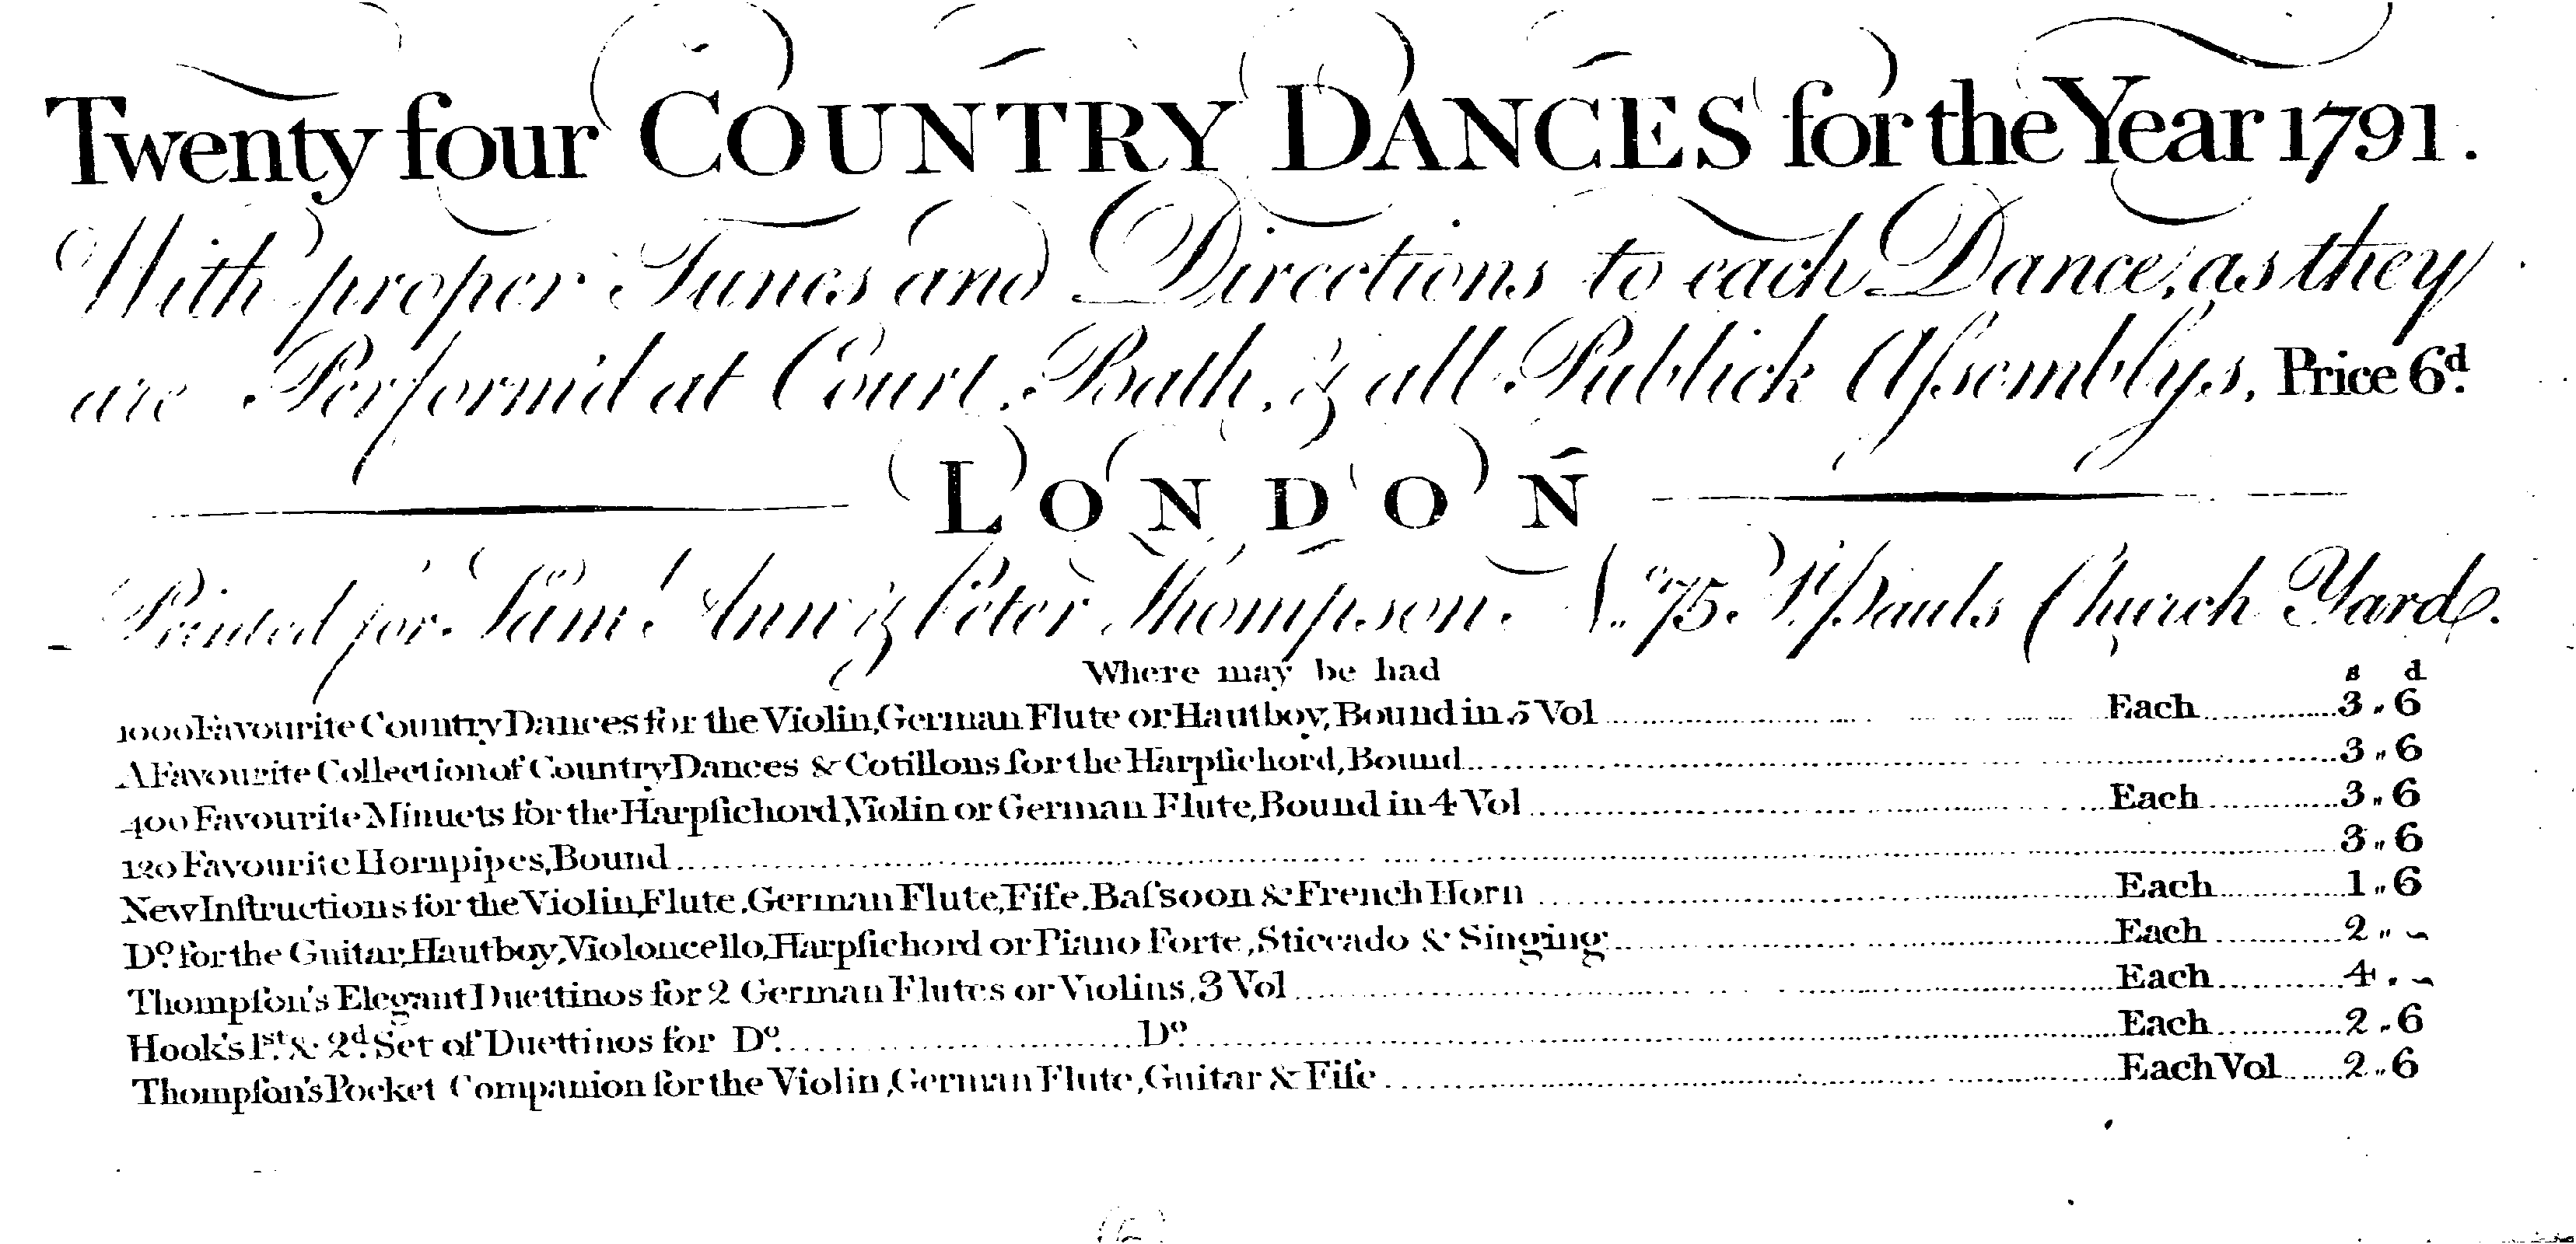 Twenty four COUNTRY DANCES for the Year 1791.
With proper Tunes and Directions to each Dance, as they
are Perform'd at Court, Bath, & all Publick Aſsemblys, Price 6d.
LONDON
Printed for Saml. Ann & Peter Thompson. No. 75. St. Pauls Church Yard.
Where may be had
s d
1000 Favourite Country Dances for the Violin, German Flute or Hautboy, Bound in 5 Vol Each 3 „ 6
A Favourite Collection of Country Dances & Cotillons for the Harpſichord, Bound 3 „ 6
400 Favourite Minuets for the Harpſichord, Violin or German Flute, Bound in 4 Vol Each 3 „ 6
120 Favourite Hornpipes, Bound 3 „ 6
New Inſtructions for the Violin, Flute, German Flute, Fife, Baſsoon & French Horn Each 1 „ 6
Do. for the Guitar, Hautboy, Violoncello, Harpſichord or Piano Forte, Sticcado & Singing Each 2 „ ~
Thompſon's Elegant Duettinos for 2 German Flutes or Violins, 3 Vol Each 4 . ~
Hook's 1st. & 2d. Set of Duettinos for Do. Do. Each 2 „ 6
Thompſon's Pocket Companion for the Violin, German Flute, Guitar & Fife Each Vol 2 „ 6